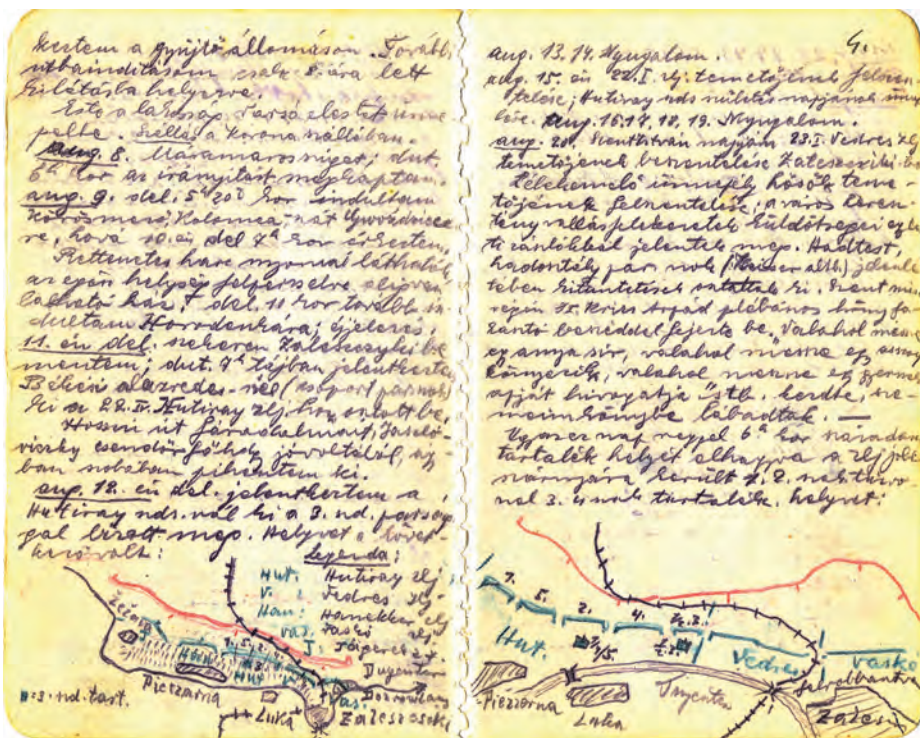 keztem a gyűjtő állomáson. További
útbaindításom csak 8.-ára lett
kilátásba helyezve.
Este a lakosság Varsó elestét ünne
pelte. Szállás a Korona szállóban.
aug. 8. Máramarossziget; dut.
6h kor az irányítást megkaptam.
aug. 9. del. 5h 20' kor indultam
Kőrösmező, Kolomea,
re, hová 10.én del 7h kor érkeztem.
Rettenetes harc nyomai láthatók
az egész helység felperzselve, alig van
lakható ház. del. 11 kor tovább in
dultam Horodenkára; éjjelezés.
11.én del. szekeren Zaleszczykibe
mentem; dut. 7h tájban jelentkeztem
Békési alezredes-nél (csoport pársnok)
ki a 22.IV. Hutiray zlj. hoz osztott be.
Hosszú út fáradalmait,
csendőr főhdgy jóvoltából, ágy
ban szobában pihentem ki.
aug. 12.én del. jelentkeztem a
Hutiray nds. vál ki a 3. nd. parság
gal bízott meg. Helyzet a követ-
kező volt:
Legenda:
Hut: Hutiray zlj
V. : Vedres zlj.
Han: Hanekker zlj
Vas: Vaskó zlj
Zezava
Hut
Pieczarna
Luka
Zaleszczyki
= 3. nd. tart.
4.
aug. 13. 14. Nyugalom.
aug. 15. én 22.I. zlj. temetőjének felszen
telése; Hutiray nds születés napjának ünnep
lése. aug. 16. 17. 18. 19. Nyugalom.
aug. 20. Szent István napján 23.I. Vedres zlj
temetőjének beszentelése Zaleszczyki-ban
Lélekemelő ünnepély hősök teme-
tőjének felszentelése; a város keresz-
tény vallásfelekezetek küldöttségei egyház
zászlókkal jelentek meg. Hadtest,
hadosztály pár. nok jelenlé
tében kitüntetések osztattak ki. Szent mise
végén Árpád plébános könny fa
kasztó beszéddel fejezte be, "Valahol messze
egy anya sír, valahol messze egy asszony
könyezik, valahol messze egy gyermek
apját hívogatja" stb. kezdte, sze-
meim könybe lábadtak. —
Ugyanez nap reggel 6h kor
tartalék helyét elhagyva a zlj jobb
szárnyára került 1. 2.
3. tartalék. helyzet:
1.
5.
2.
4.
Hut.
Vedres
Vaskó
Pieczarna
Luka
Zalesz